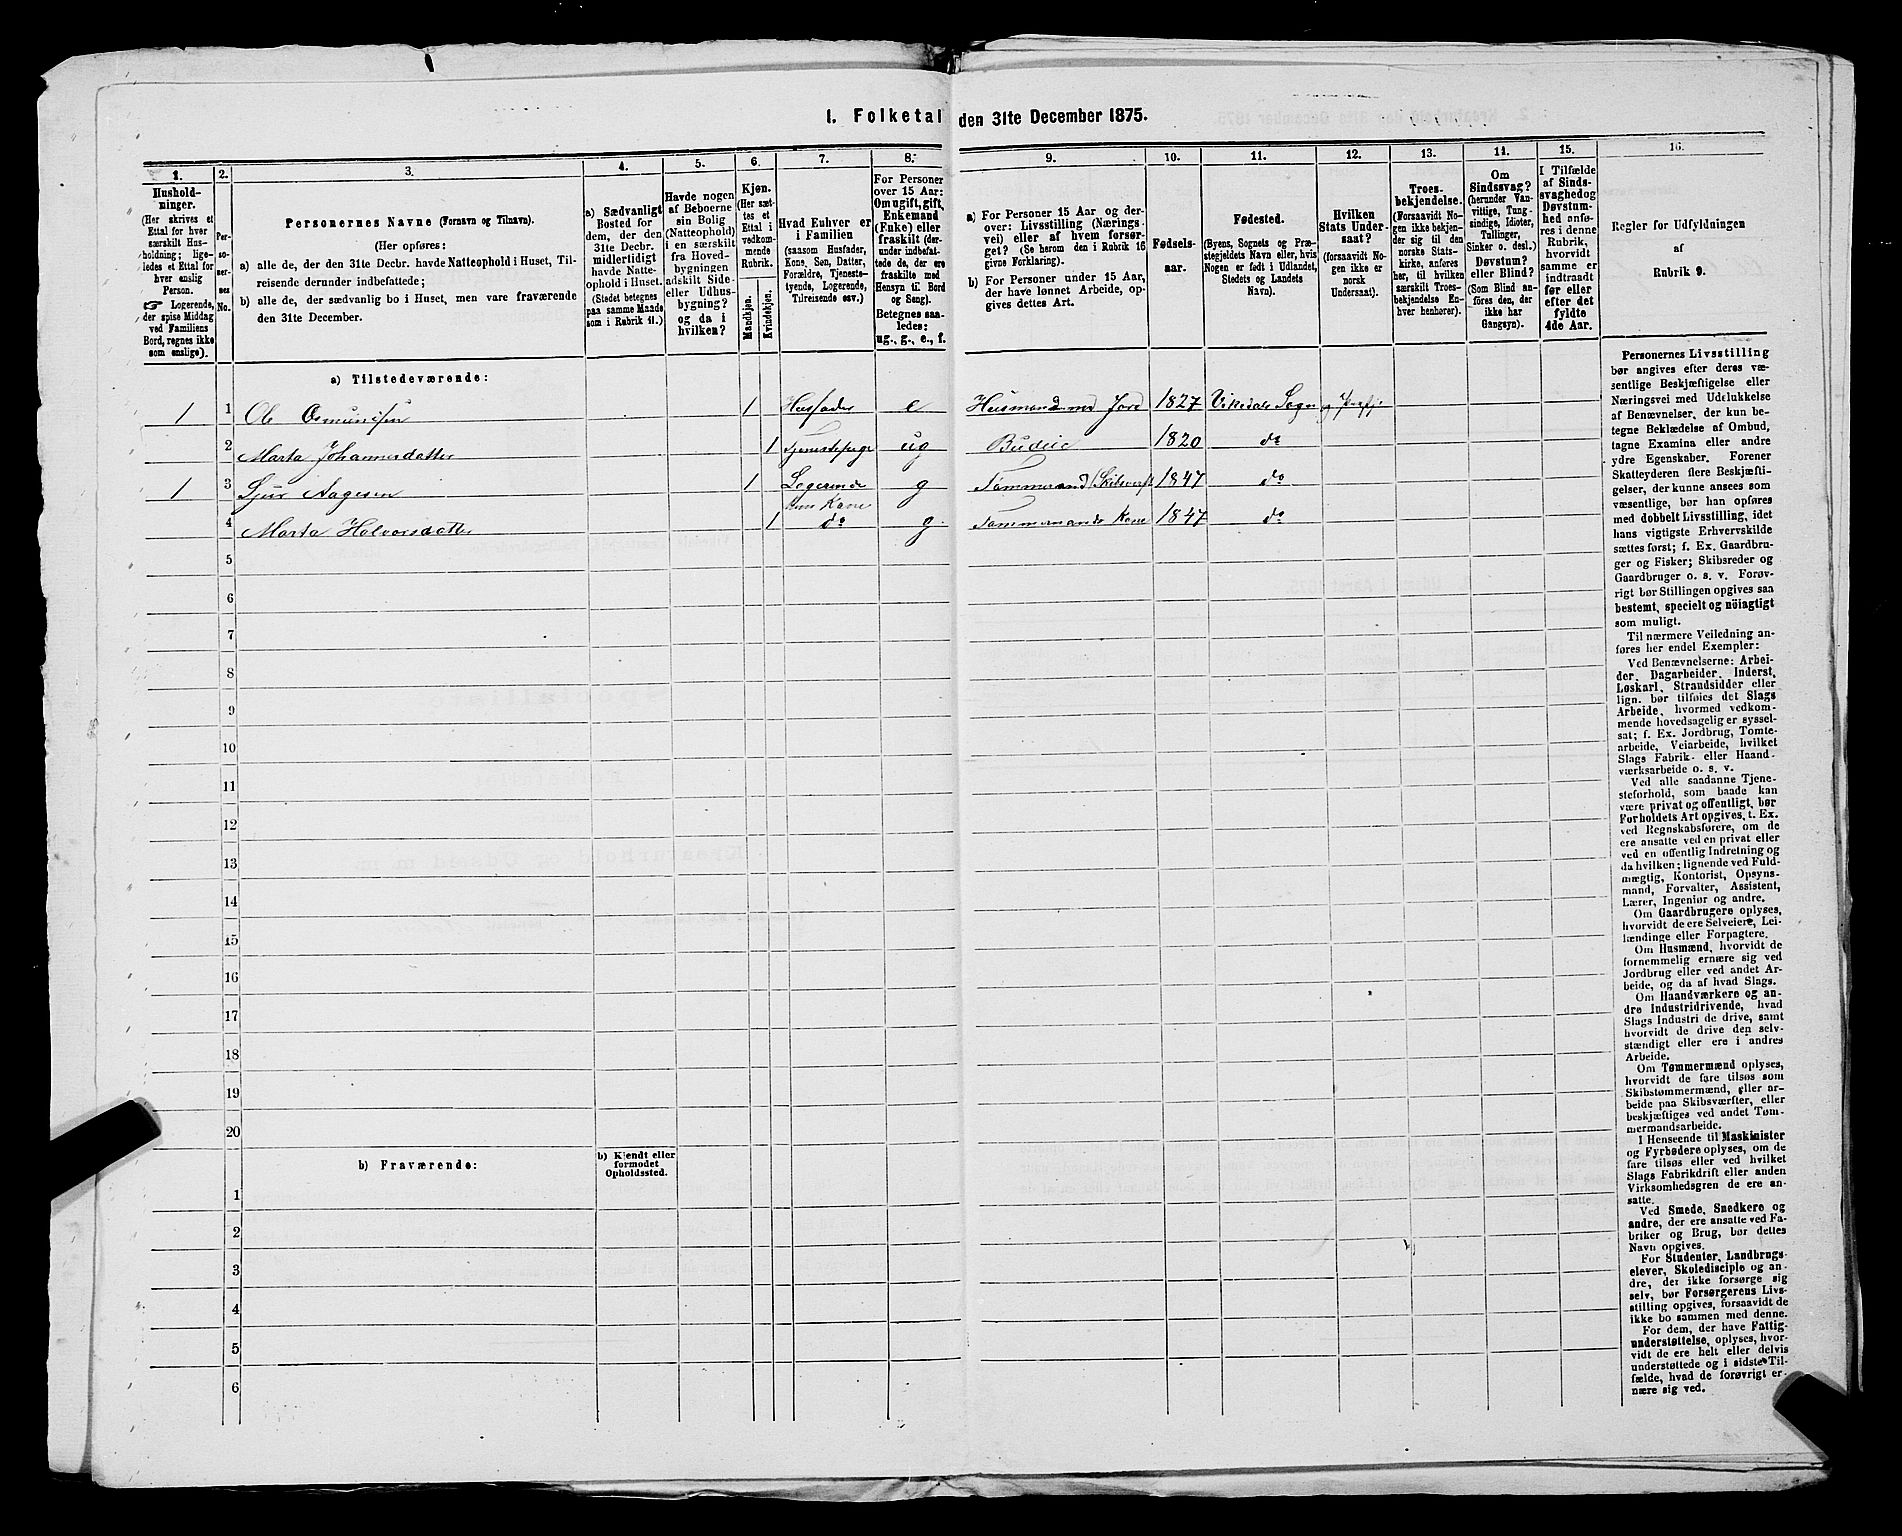 1. Folketal den 31te December 1875.
1. 2. 3. 4. 5. 6. 7. 8. 9. 10. 11. 12. 13. 14. 15. 16.
Hushold-
ninger.
(Her skrives et
Ettal for hver
særskilt Hus-
holdning; lige-
ledes et Ettal for
hver enslig
Person.
☞ Logerende,
der spise Middag
ved Familiens
Bord, regnes ikke
som enslige).
Per-
so-
ner-
nes
No.
Personernes Navne (Fornavn og Tilnavn).
(Her opføres:
a) alle de, der den 31te Decbr. havde Natteophold i Huset, Til-
reisende derunder indbefattede;
b) alle de, der sædvanlig bo i Huset, men vare fraværende
den 31te December.
a) Sædvanligt
Bosted for
dem, der den
31te Decbr.
midlertidigt
havde Natte-
ophold i Huset.
(Stedet betegnes
paa samme Maade
som i Rubrik 11.)
Havde nogen
af Beboerne
sin Bolig
(Natteophold)
i en særskilt
fra Hoved-
bygningen
adskilt Side-
eller Udhus-
bygning?
og da i
hvilken?
Kjøn.
(Her sæt-
tes et
Ettal i
vedkom-
mende
Rubrik.
Mandkjøn.
Kvindekjøn.
Hvad Enhver er
i Familien
(saasom Husfader,
Kone, Søn, Datter,
Forældre, Tjeneste-
tyende, Logerende,
Tilreisende osv.)
For Personer
over 15 Aar:
Om ugift, gift,
Enkemand
(Enke) eller
fraskilt (der-
under indbefat-
tede de, der ere
fraskilte med
Hensyn til Bord
og Seng).
Betegnes saa-
ledes:
ug., g., e., f.
a) For Personer 15 Aar og der-
over: Livsstilling (Nærings-
vei) eller af hvem forsør-
get? (Se herom den i Rubrik 16
givne Forklaring).
b) For Personer under 15 Aar,
der have lønnet Arbeide, op-
gives dettes Art.
Fødsels-
aar.
Fødested.
(Byens, Sognets og Præ-
stegjeldets Navn eller, hvis
Nogen er født i Udlandet,
Stedets og Landets
Navn).
Hvilken
Stats Under-
saat?
(forsaavidt No-
gen ikke er
norsk
Undersaat).
Troes-
bekjendelse.
(Forsaavidt No-
gen ikke bekjen-
der sig til den
norske Stats-
kirke, anføres
her, til hvilken
særskilt Troes-
bekjendelse En-
hver henhører).
Om
Sindssvag?
(herunder Van-
vittige, Tung-
sindige, Idioter,
Tullinger,
Sinker o. desl.)
Døvstum?
eller Blind?
(Som Blind an-
føres den, der
ikke har
Gangsyn).
I Tilfælde
af Sinds-
svaghed og
Døvstum-
hed anfø-
res i denne
Rubrik,
hvorvidt
samme er
indtraadt
før eller
efter det
fyldte
4de Aar.
Regler for Udfyldningen
af
Rubrik 9.
a) Tilstedeværende:
1 1 Ole Osmundsen 1 Husfader e Husmand med Jord 1827 Vikedals Sogn og
2 Marta Johannesdatter 1 ug Budeie 1820 do
1 3 Sjur Aagesen 1 Logerende g Tømmermand Skibsverft 1847 do
4 Marta Halvorsdatter 1 Kone do g Tømmermands Kone 1847 do
5
6
7
8
9
10
11
12
13
14
15
16
17
18
19
20
b) Fraværende:
b) Kjendt eller
formodet
Opholdssted.
1
2
3
4
5
6
Personernes Livsstilling
bør angives efter deres væ-
sentlige Beskjæftigelse eller
Næringsvei med Udelukkelse
af Benævnelser, der kun be-
tegne Beklædelse af Ombud,
tagne Examina eller andre
ydre Egenskaber. Forener
Skatteyderen flere Beskjæfti-
gelser, der kunne ansees som
væsentlige, bør han opføres
med dobbelt Livsstilling, idet
hans vigtigste Erhvervskilde
sættes først; f. Ex. Gaardbru-
ger og Fisker; Skibsreder og
Gaardbruger o. s. v. Forøv-
rigt bør Stillingen opgives saa
bestemt, specielt og nöiagtigt
som muligt.
Til nærmere Veiledning an-
føres her endel Exempler:
Ved Benævnelserne: Arbei-
der, Dagarbeider, Inderst,
Løskarl, Strandsidder eller
lign. bør tilføies det Slags
Arbeide, hvormed vedkom-
mende hovedsagelig er syssel-
sat; f. Ex. Jordbrug, Tomte-
arbeide, Veiarbeide, hvilket
Slags Fabrik- eller Haand-
værksarbeide o. s. v.
Ved alle saadanne Tjene-
steforhold, som baade kan
være privat og offentligt, bør
Forholdets Art opgives, t. Ex.
ved Regnskabsførere, om de
ere ansatte ved en privat eller
ved en offentlig Indretning og
da hvilken; lignende ved Fuld-
mægtig, Kontorist, Opsyns-
mand, Forvalter, Assistent,
Lærer, Ingeniør og andre.
Om Gaardbrugere oplyses,
hvorvidt de ere Selveiere, Lei-
lændinge eller Forpagtere.
Om Husmænd, hvorvidt de
fornemmelig ernære sig ved
Jordbrug eller ved andet Ar-
beide, og da af hvad Slags.
Om Haandværkere og an-
dre Industridrivende, hvad
Slags Industri de drive, samt
hvorvidt de drive den selv-
stændigt eller ere i andres
Arbeide.
Om Tømmermænd oplyses,
hvorvidt de fare tilsøs som
Skibstømmermænd, eller ar-
beide paa Skibsværfter, eller
beskjæftiges ved andet Tøm-
mermandsarbeide.
I Henseende til Maskinister
og Fyrbødere oplyses, om de
fare tilsøs eller ved hvilket
Slags Fabrikdrift eller anden
Virksomhedsgren de ere an-
satte.
Ved Smede, Snedkere og
andre, der ere ansatte ved Fa-
briker og Brug, bør dettes
Navn opgives.
For Studenter, Landbrugs-
elever, Skoledisciple og an-
dre, der ikke forsørge sig
selv, bør Forsørgerens Livs-
stilling opgives, forsaavidt de
ikke bo sammen med denne.
For dem, der have Fattig-
understøttelse, oplyses, hvor-
vidt de ere helt eller delvis
understøttede og i sidste Til-
fælde, hvad de forøvrigt er-
nære sig ved.